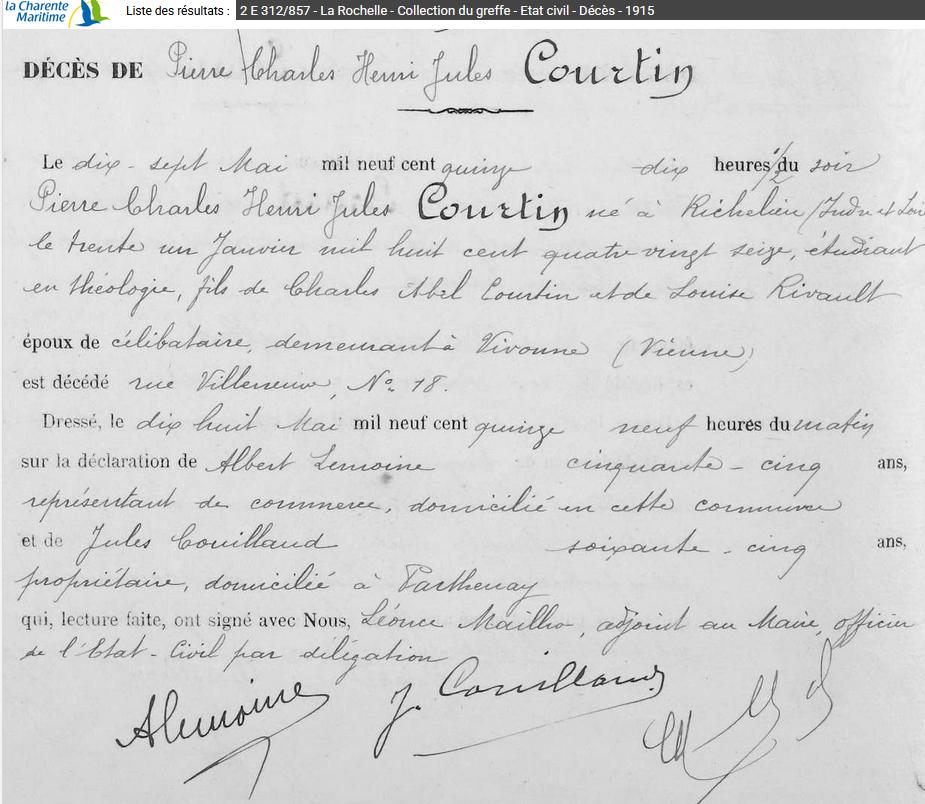 la Charente
Maritime
Liste des résultats : 2 E 312/857 - La Rochelle - Collection du greffe - Etat civil - Décès - 1915
DÉCÈS DE Pierre Charles Henri Jules Courtin
Le dix-sept Mai mil neuf cent quinze dix heures 1/2 du soir
Pierre Charles Henri Jules Courtin né à Richelieu (Indre et Loi
le trente un Janvier mil huit cent quatre vingt seize, étudiant
en théologie, fils de Charles Abel Courtin et de Louise Rivault
époux de célibataire, demeurant à Vivonne (Vienne)
est décédé rue Villeneuve, No 18.
Dressé, le dix huit Mai mil neuf cent quinze neuf heures du matin
sur la déclaration de Albert Lemoine cinquante-cinq ans,
représentant de commerce, domicilié en cette commune
et de Jules Couillaud soixante-cinq ans,
propriétaire, domicilié à Parthenay
qui, lecture faite, ont signé avec Nous, Léonce Mailho, adjoint au Maire, officier
de l'Etat-Civil par délégation
ALemoine J. Couillaud